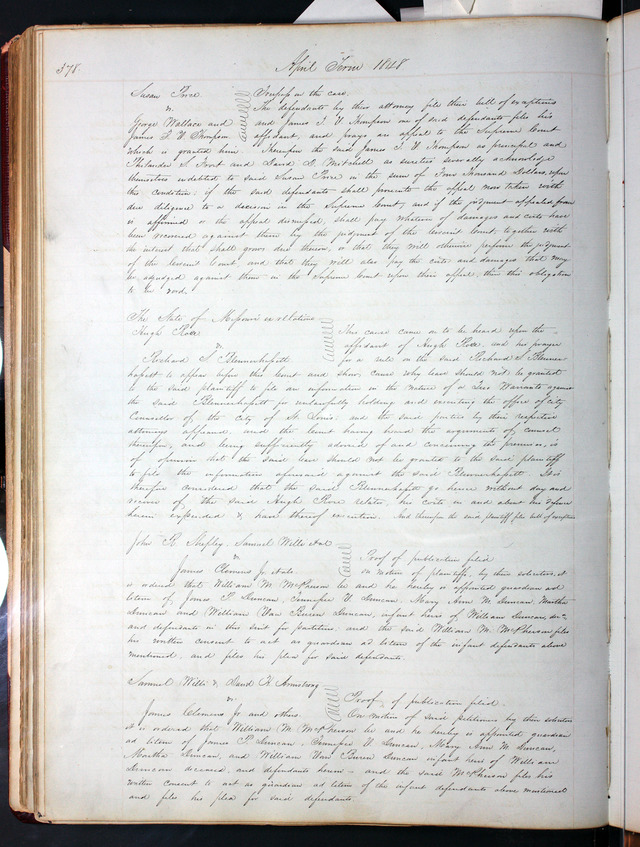 378.
April Term 1848
Susan Price
Trespass on the case.
vs.
The defendants by their attorney file their bill of exceptions
George Wallace and
and James T. V. Thompson one of said defendants files his
James T. V. Thompson
affidavit, and prays an appeal to the Supreme Court
which is granted him. Thereupon the said James T. V. Thompson as principal and
Philander S. and David D. Mitchell as sureties severally acknowledge
themselves indebted to said Susan Price in the sum of Two Thousand Dollars, upon
this condition; if the said defendants shall prosecute the appeal now taken with
due diligence to a decision in the Supreme Court, and if the judgment appealed from
is affirmed or the appeal dismissed, shall pay whatever of damages and costs have
been recovered against them by the judgment of the Circuit Court, together with
the interest that shall grow due thereon, or that they will otherwise perform the judgment
of the Circuit Court and that they will also pay the costs and damages that may
be adjudged against them in the Supreme Court upon their appeal, then this obligation
to be void.
The State of Missouri ex relatione
Hugh Rose
This cause came on to be heard upon the
vs.
affidavit of Hugh Rose and his prayer
Richard S. Blennerhassett
for a rule on the said Richard S. Blenner
hassett to appear before this Court and show cause why leave should not be granted
to the said plaintiff to file an information in the nature of a Quo Warranto against
the said Blennerhassett for unlawfully holding and executing the office of City
Counsellor of the City of St. Louis, and the said parties by their respective
attorneys appeared, and the Court having heard the arguments of counsel
therefor, and being sufficiently advised of and concerning the premises, is
of opinion that the said leave should not be granted to the said plaintiff
to file the information aforesaid against the said Blennerhassett. It is
therefore considered that the said Blennerhassett go hence without day and
recover of the said Hugh Rose relator, his costs in and about his defence
herein expended &, have thereof execution. And thereupon the said plaintiff files bill of exceptions
John R. Shepley, Samuel Willi et al
Proof of publication filed
vs
On motion of plaintiffs, by their solicitors, it
James Clemens Jr. et als.
is ordered that William M. McPherson be and he hereby is appointed guardian ad
litem of James P. Duncan, Jennifer V. Duncan, Mary Ann M. Duncan, Martha
Duncan and William Van Buren Duncan, infant heirs of William Duncan, decd
and defendants in this suit for partition, and the said William M. McPherson files
his written consent to act as guardian ad litem of the infant defendants above
mentioned, and files his plea for said defendants.
Samuel Willi & David H. Armstrong
vs.
Proof of publication filed.
James Clemens Jr. and others.
On motion of said petitioners by their solicitors
it is ordered that William M. McPherson be and he hereby is appointed guardian
ad litem of James P. Duncan, Jennifer V. Duncan, Mary Ann M. Duncan,
Martha Duncan, and William Van Buren Duncan infant heirs of William
Duncan deceased, and defendants herein - and the said McPherson files his
written consent to act as guardian ad litem of the infant defendants above mentioned
and files his plea for said defendants.